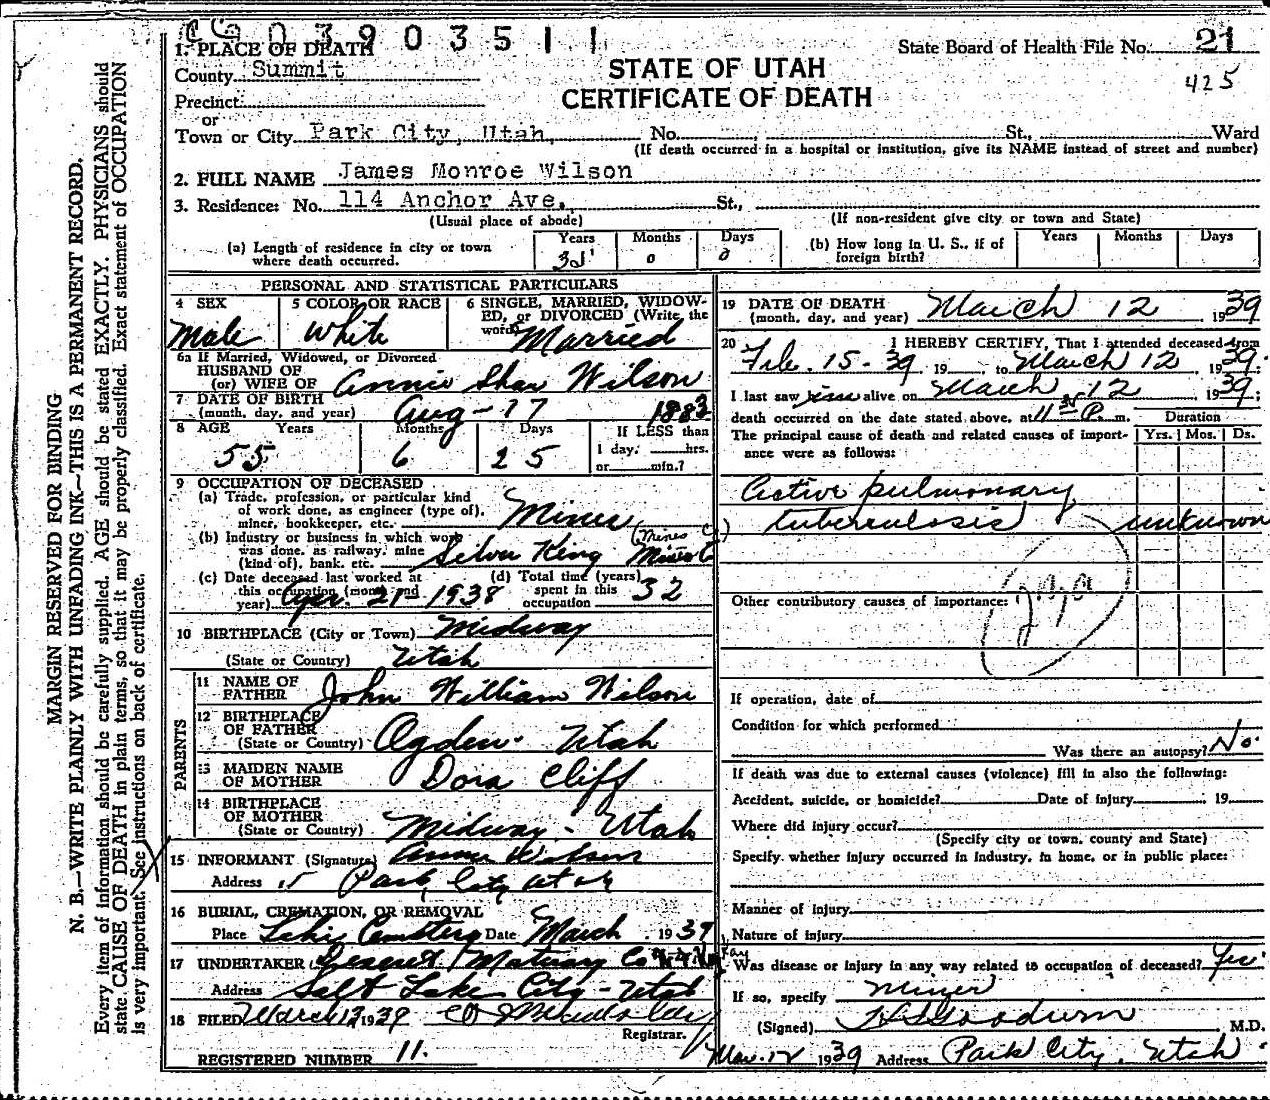 MARGIN RESERVED FOR BINDING
N. B.—WRITE PLAINLY WITH UNFADING INK—THIS IS A PERMANENT RECORD.
Every item of information should be carefully supplied. AGE should be stated EXACTLY. PHYSICIANS should
state CAUSE OF DEATH in plain terms, so that it may be properly classified. Exact statement of OCCUPATION
is very important. See instructions on back of certificate.
03903511
State Board of Health File No. 21
425
STATE OF UTAH
CERTIFICATE OF DEATH
1. PLACE OF DEATH
County Summit
Precinct
or
Town or City Park City, Utah, No. , St., Ward
(If death occurred in a hospital or institution, give its NAME instead of street and number)
2. FULL NAME James Monroe Wilson
3. Residence: No. 114 Anchor Ave. St.,
(Usual place of abode) (If non-resident give city or town and State)
(a) Length of residence in city or town where death occurred. Years Months 0 Days 0
(b) How long in U. S., if of foreign birth? Years Months Days
PERSONAL AND STATISTICAL PARTICULARS
4 SEX Male
5 COLOR OR RACE White
6 SINGLE, MARRIED, WIDOWED, or DIVORCED (Write the word) Married
6a If Married, Widowed, or Divorced
HUSBAND OF
(or) WIFE OF Annie Shaw Wilson
7 DATE OF BIRTH
(month, day, and year) Aug-17 1883
8 AGE Years 55 Months 6 Days 25 If LESS than 1 day, hrs. or min.?
9 OCCUPATION OF DECEASED
(a) Trade, profession, or particular kind
of work done, as engineer (type of),
miner, bookkeeper, etc. Miner
(b) Industry or business in which work
was done, as railway, mine
(kind of), bank, etc. Silver King Mines Co (Mines Co)
(c) Date deceased last worked at
this occupation (month and
year) Apr. 21-1938
(d) Total time (years)
spent in this
occupation 32
10 BIRTHPLACE (City or Town) Midway
(State or Country) Utah
PARENTS
11 NAME OF
FATHER John William Wilson
12 BIRTHPLACE
OF FATHER
(State or Country) Ogden - Utah
13 MAIDEN NAME
OF MOTHER Dora Cliff
14 BIRTHPLACE
OF MOTHER
(State or Country) Midway - Utah
15 INFORMANT (Signature) Annie Wilson
Address Park City Utah
16 BURIAL, CREMATION, OR REMOVAL
Place Lehi Cemetery Date March 1939
17 UNDERTAKER Mortuary Co
Address Salt Lake City - Utah
18 FILED March 13 1939
Registrar.
REGISTERED NUMBER 11.
19 DATE OF DEATH
(month, day, and year) March 12 1939
20 I HEREBY CERTIFY, That I attended deceased from
Feb. 15-39, 19 , to March 12, 1939.
I last saw him alive on March 12 1939;
death occurred on the date stated above, at 11 30 P. m.
Duration
Yrs. Mos. Ds.
The principal cause of death and related causes of importance were as follows:
Active pulmonary
tuberculosis unknown
Other contributory causes of importance:
If operation, date of
Condition for which performed
Was there an autopsy? No.
If death was due to external causes (violence) fill in also the following:
Accident, suicide, or homicide? Date of injury 19
Where did injury occur?
(Specify city or town, county and State)
Specify whether injury occurred in industry, in home, or in public place:
Manner of injury
Nature of injury
Was disease or injury in any way related to occupation of deceased? Yes
If so, specify Miner
(Signed) Goodwin M.D.
Mar. 12 1939 Address Park City, Utah